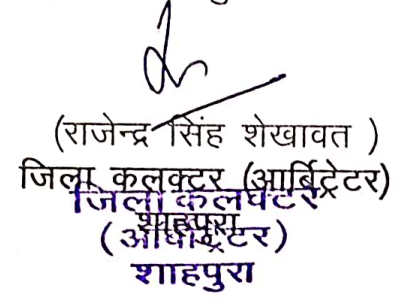 (राजेन्द्र सिंह शेखावत )
जिला कलक्टर (आर्बिट्रेटर)
शाहपुरा
जिला कलक्टर
(आर्बीट्रेटर)
शाहपुरा